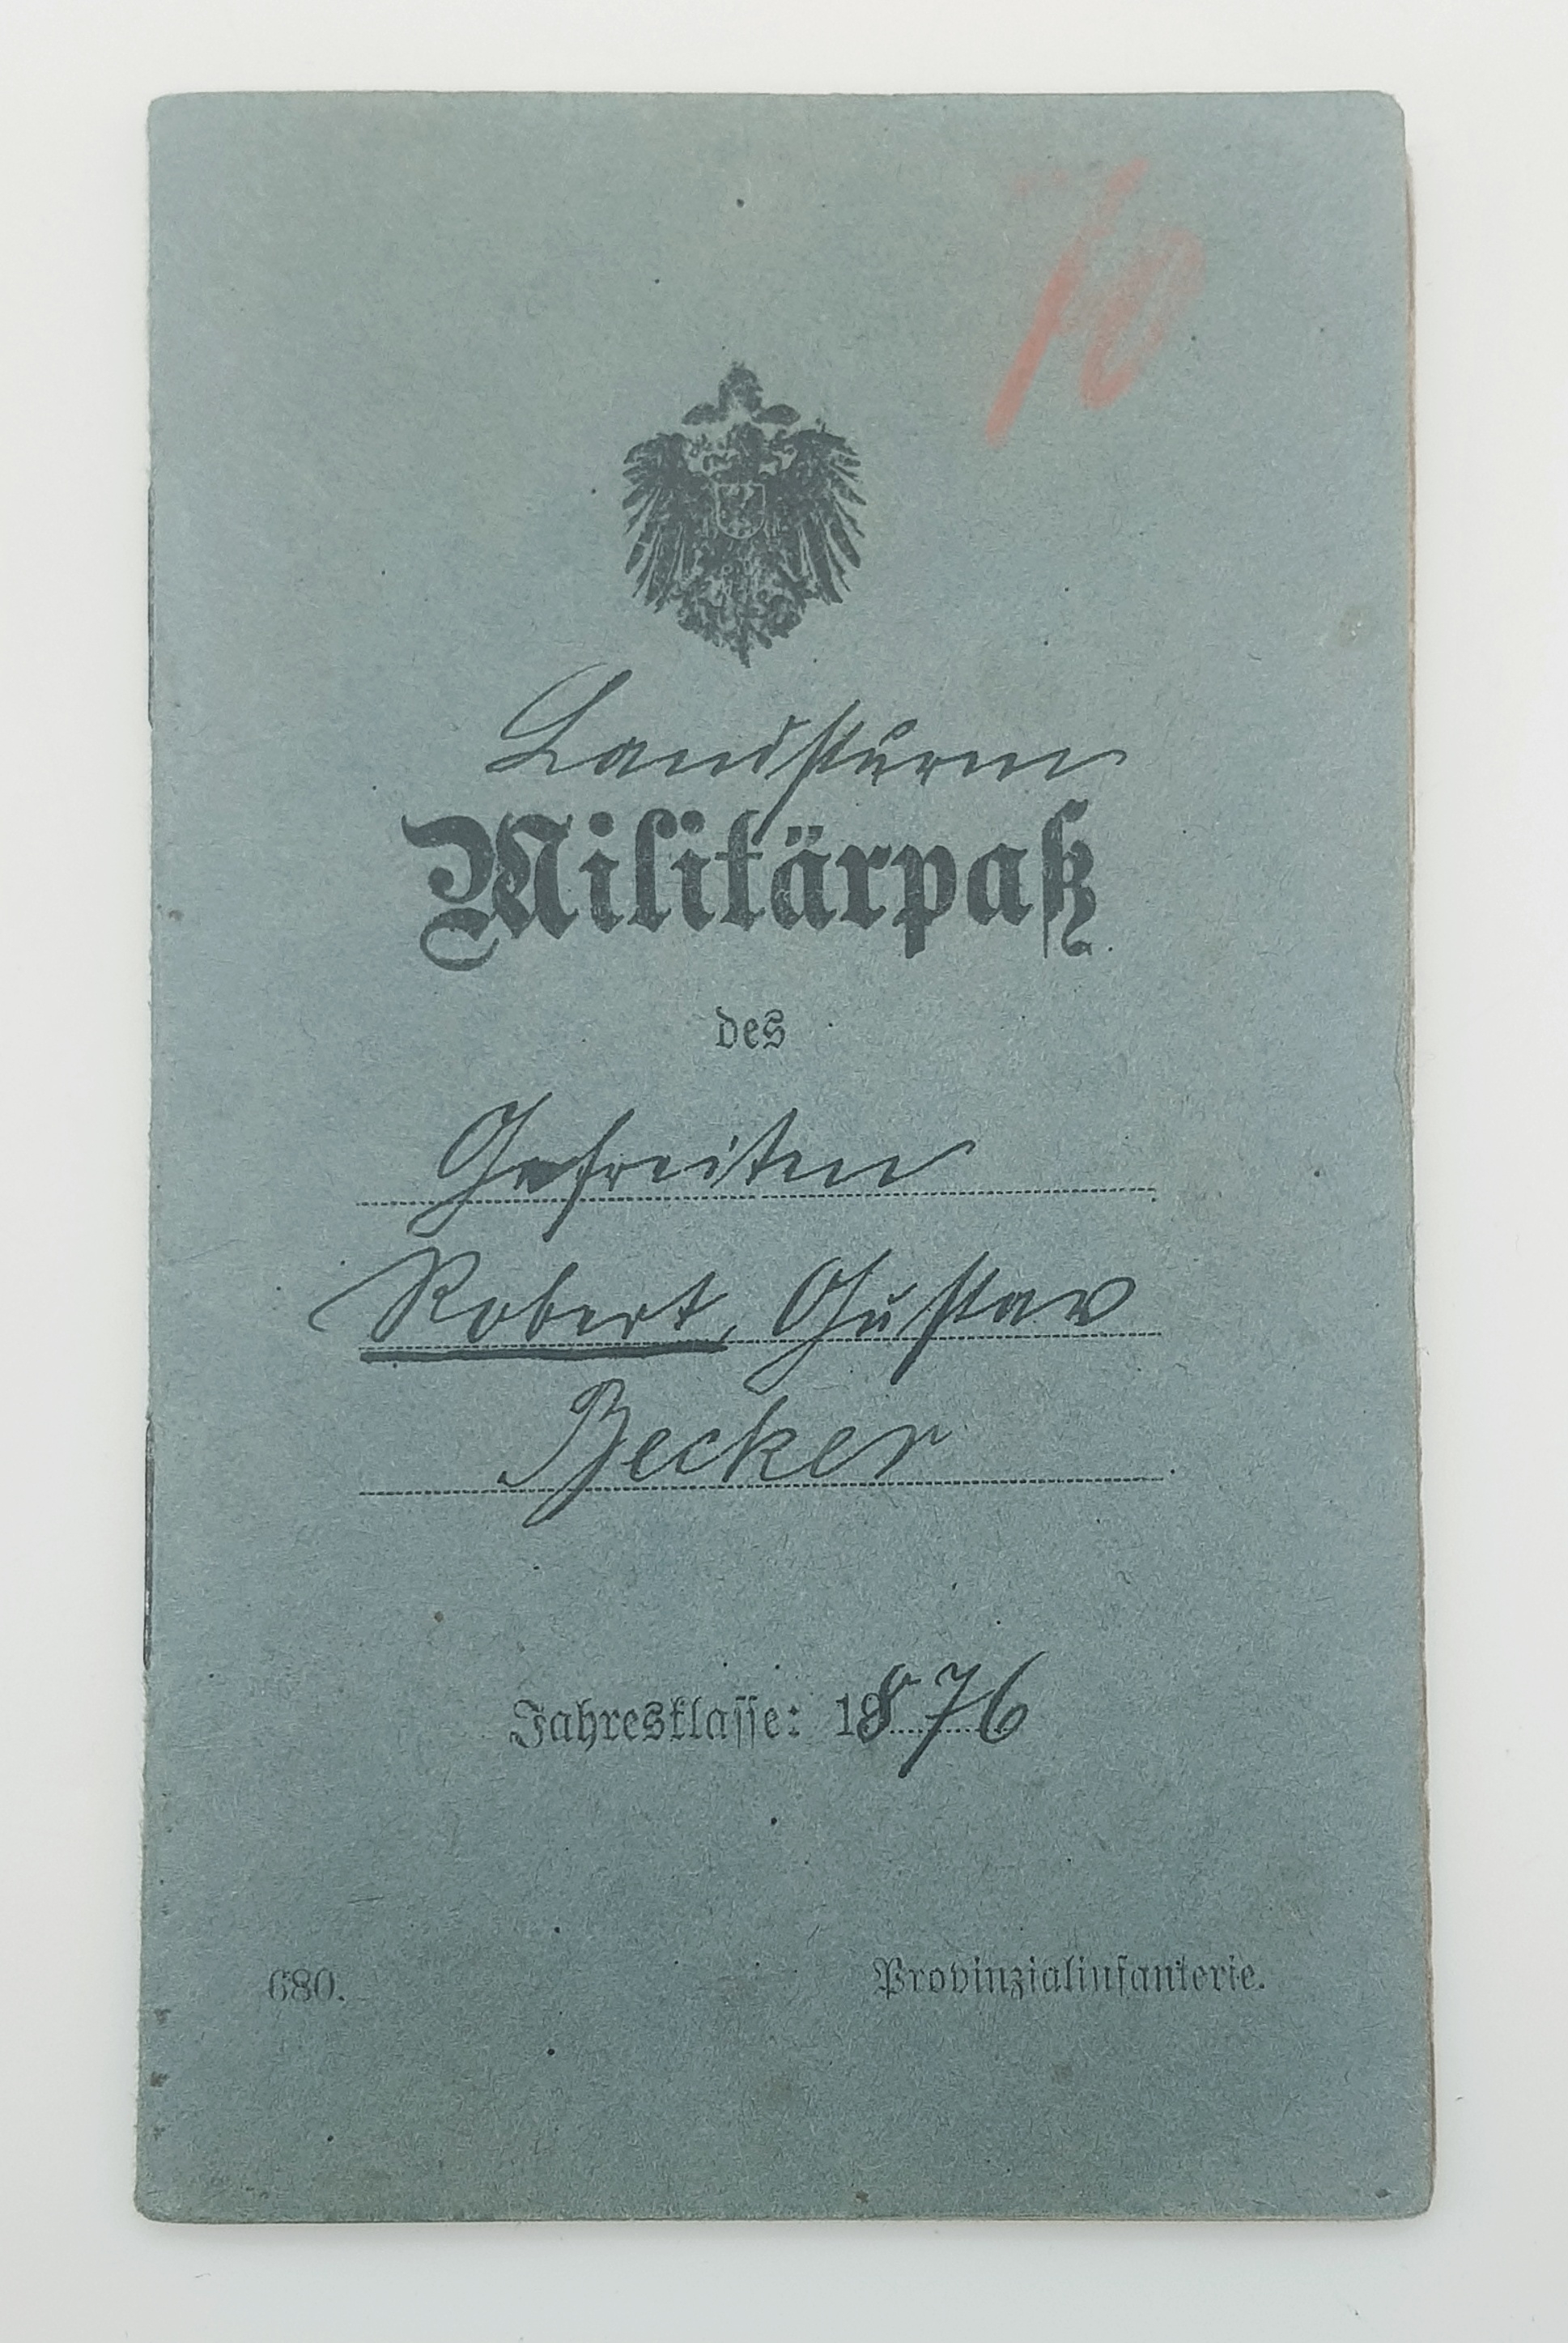 70
Landsturm
Militärpaß
des
Gefreiten
Robert, Gustav
Becker
Jahresklasse: 1876
680.
Provinzialinfanterie.